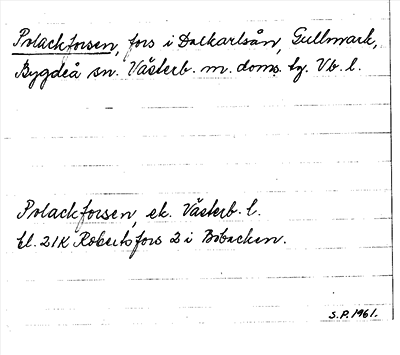 Polackforsen, fors i Dalkarlsån, Gullmark,
Bygdeå sn. Västerb. m. doms. tg. Vb. l.
Polackforsen, ek. Västerb. l.
bl. 21K Robertsfors 2 i Bobacken.
S.P. 1961.